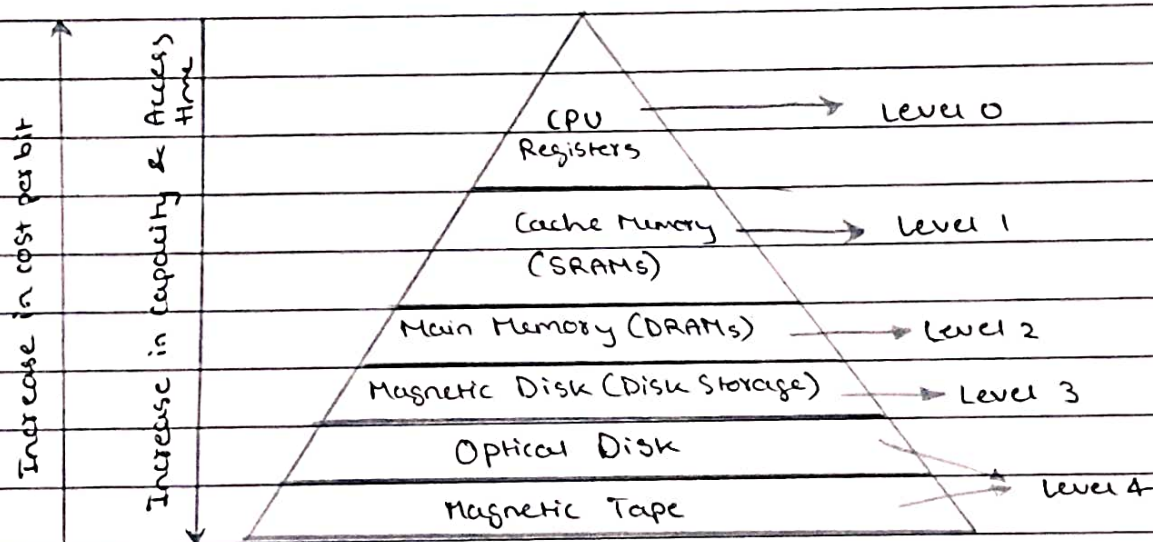 Increase in cost per bit
Increase in capacity & Access
time
CPU
Registers
Level 0
Cache Memory
(SRAMs)
Level 1
Main Memory (DRAMs)
Level 2
Magnetic Disk (Disk Storage)
Level 3
Optical Disk
Magnetic Tape
Level 4